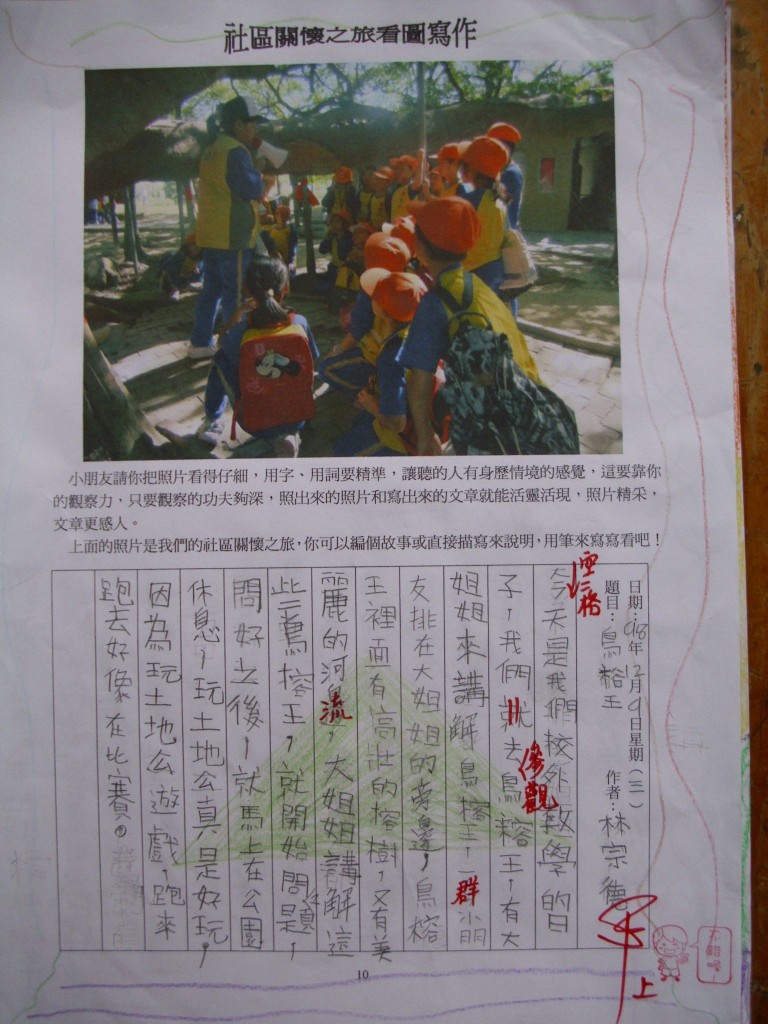 社區關懷之旅看圖寫作
小朋友請你把照片看得仔細，用字、用詞要精準，讓聽的人有身歷情境的感覺，這要靠你
的觀察力，只要觀察的功夫夠深，照出來的照片和寫出來的文章就能活靈活現，照片精采，
文章更感人。
上面的照片是我們的社區關懷之旅，你可以編個故事或直接描寫來說明，用筆來寫寫看吧！
日期：98年12月9日星期（三）
題目：鳥榕王 作者：林宗德
空二格
今天是我們校外教學的日
子，我們就去鳥榕王，有大
參觀
姐姐來講解鳥榕王，一群小朋
友排在大姐姐的旁邊，鳥榕
王裡面有高壯的榕樹，又有美
麗的河流，大姐姐講解這
些鳥榕王，就開始問題，
問好之後，就馬上在公園
休息，玩土地公真是好玩，
因為玩土地公遊戲，跑來
跑去好像在比賽。
甲上
不錯喔
10